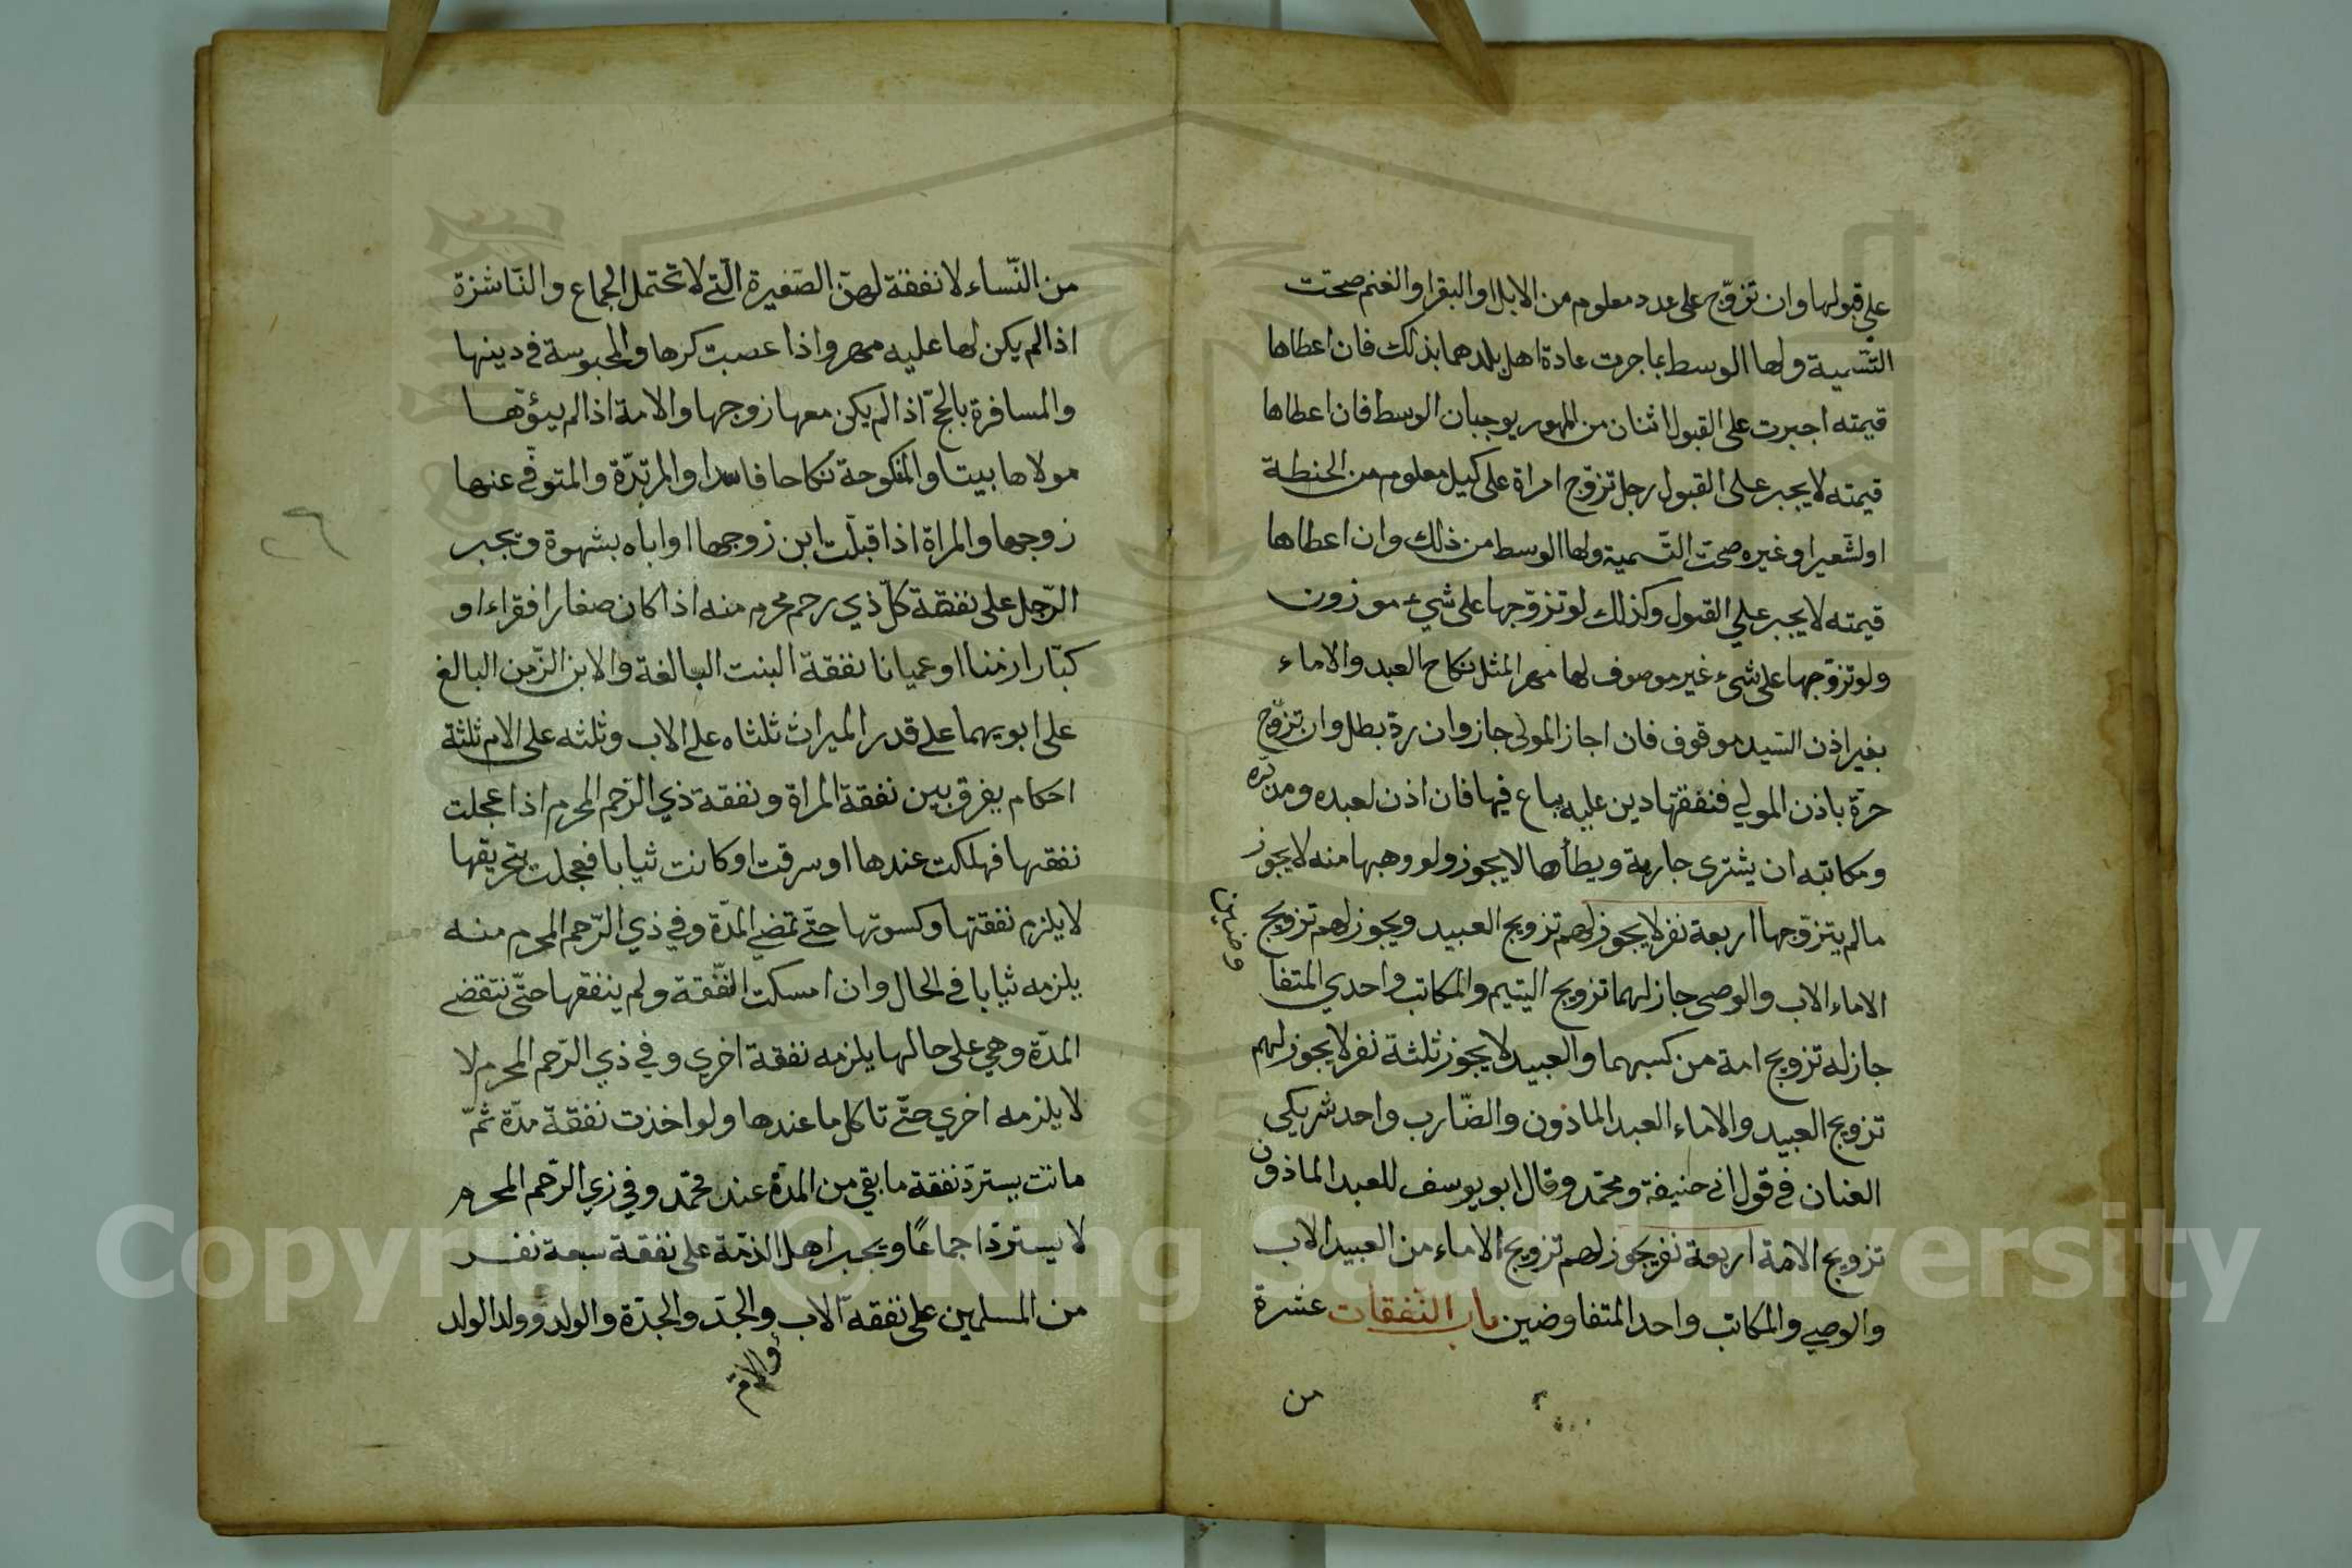 على قبولها وان تزوّج على عدد معلوم من الابل او البقر او الغنم صحت
التسمية ولها الوسط بما جرت عادة اهل بلدهما بذلك فان اعطاها
قيمته اجبرت على القبول اثنان من المهور يوجبان الوسط فان اعطاها
قيمته لا يجبر على القبول رجل تزوّج امراة على كيل معلوم من الحنطة
او لشعير او غيره صحت التّسمية ولها الوسط من ذلك وان اعطاها
قيمته لا يجبر علي القبول وكذلك لو تزوّجها على شيء موزون
ولو تزوّجها على شيء غير موصوف لها مهر المثل نكاح العبد والاماء
بغير اذن السّيد موقوف فان اجاز المولى جاز وان ردّ بطل وان تزوّج
حرّة باذن المولي فنفقتها دين عليه يباع فيها فان اذن لعبده ومدبّره
ومكاتبه ان يشترى جارية ويطأها لا يجوز ولو وهبها منه لا يجوز
مالم يتزوّجها اربعة نفر لا يجوز لهم تزويج العبيد ويجوز لهم تزويج
الاماء الاب والوصى جاز لهما تزويج اليتيم والمكاتب واحدي المتفا
وضين
جاز له تزويج امة من كسبهما والعبيد لا يجوز ثلثة نفر لا يجوز لهم
تزويج العبيد والاماء العبد الماذون والضّارب واحد شريكي
العنان في قول ابى حنيفة ومحمّد وقال ابو يوسف للعبد الماذون
تزويج الامة اربعة نفر يجوز لهم تزويج الاماء من العبيد الاب
والوصي والمكاتب واحد المتفاوضين باب النّفقات عشرة
من
من النّساء لا نفقة لهنّ الصّغيرة الّتي لا تحتمل الجماع والنّاشزة
اذا لم يكن لها عليه مهر واذا غصبت كرها والمحبوسة في دينها
والمسافرة بالحجّ اذا لم يكن معها زوجها والامة اذا لم يبؤتها
مولاها بيتا والمنكوحة نكاحا فاسدا والمرتدّة والمتوفّى عنها
زوجها والمراة اذا قبلّت ابن زوجها او اباه بشهوة ويجبر
الرّجل على نفقة كلّ ذي رحم محرم منه اذا كان صغارا فقراء او
كبّارا زمنا او عميانا نفقة البنت البالغة والابن الزّمن البالغ
على ابويهما على قدر الميراث ثلثاه على الاب وثلثه على الام ثلثة
احكام يفرق بين نفقة المراة ونفقة ذي الرّحم المحرم اذا عجلت
نفقتها فهلكت عندها او سرقت او كانت ثيابا فعجلت بتخريقها
لا يلزم نفقتها وكسوتها حتّى تمضي المدّة وفي ذي الرّحم المحرم منه
يلزمه ثيابا في الحال وان امسكت النّفقة ولم ينفقها حتّى تنقضي
المدّة وهي على حالها يلزمه نفقة اخري وفي ذي الرّحم المحرم لا
لا يلزمه اخري حتّى تاكل ما عندها ولو اخذت نفقة مدّة ثمّ
ماتت يستردّ نفقة ما بقي من المدّة عند محمّد وفي زي الرّحم المحرم
لا يستردّ اجماعًا ويجبر اهل الذمّة على نفقة سبعة نفر
من المسلمين على نفقة الاب والجدّ والجدّة والولد وولد الولد
والامّ
Copyright © King Saud University